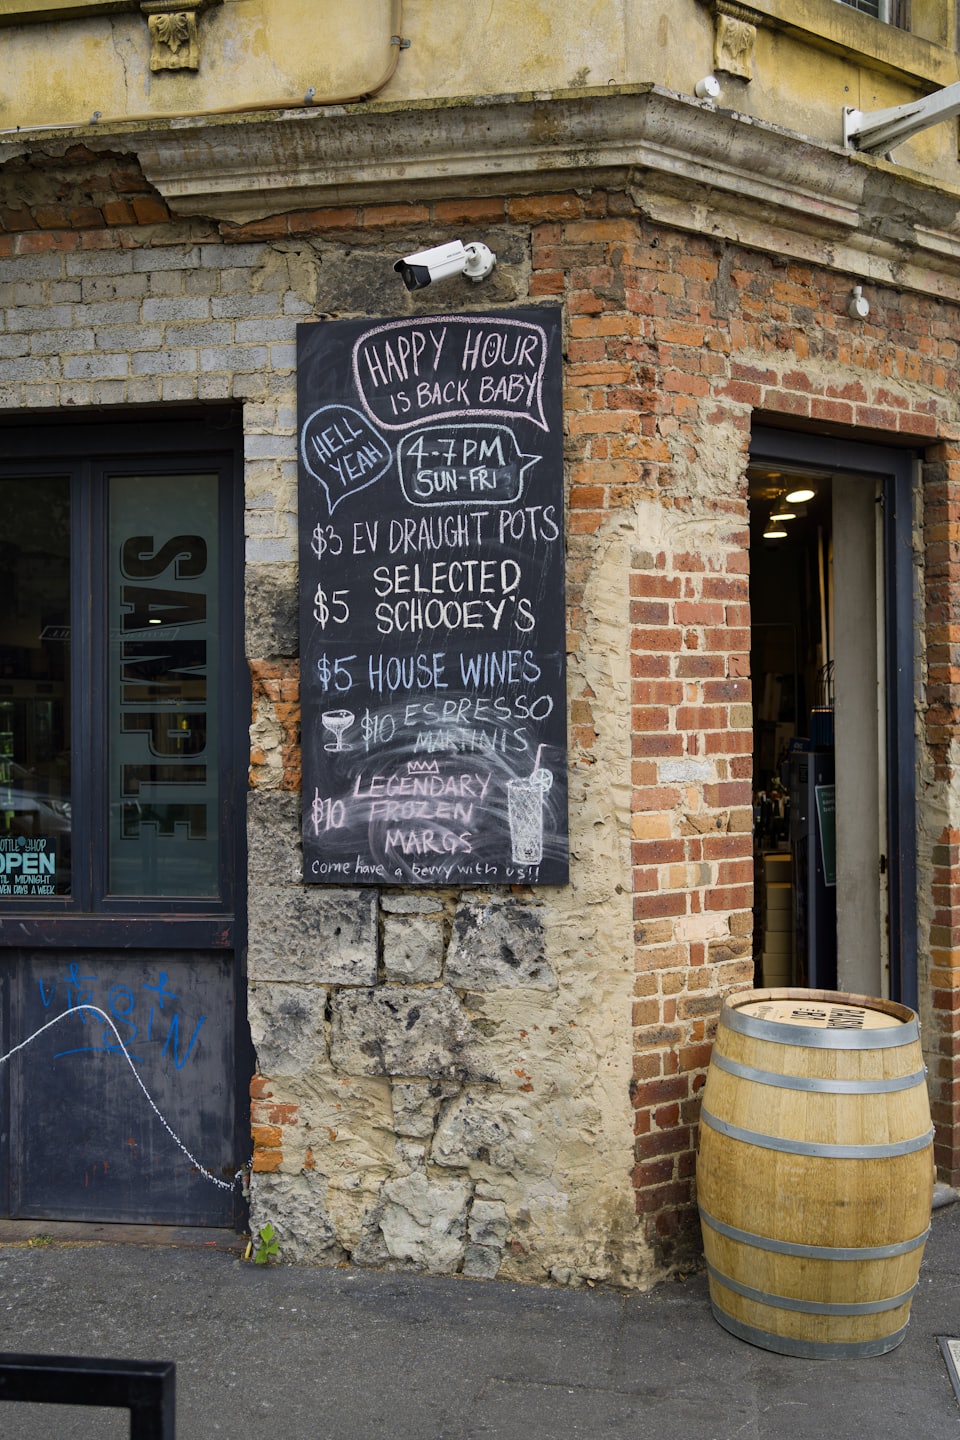 HAPPY HOUR
IS BACK BABY
HELL
YEAH
4-7PM
SUN-FRI
$3 EV DRAUGHT POTS
$5 SELECTED
SCHOOEY'S
$5 HOUSE WINES
$10 ESPRESSO
MARTINIS
LEGENDARY
$10 FROZEN
MARGS
come have a bevvy with us!!
SAMPLE
OTTLE SHOP
OPEN
TIL MIDNIGHT
VEN DAYS A WEEK